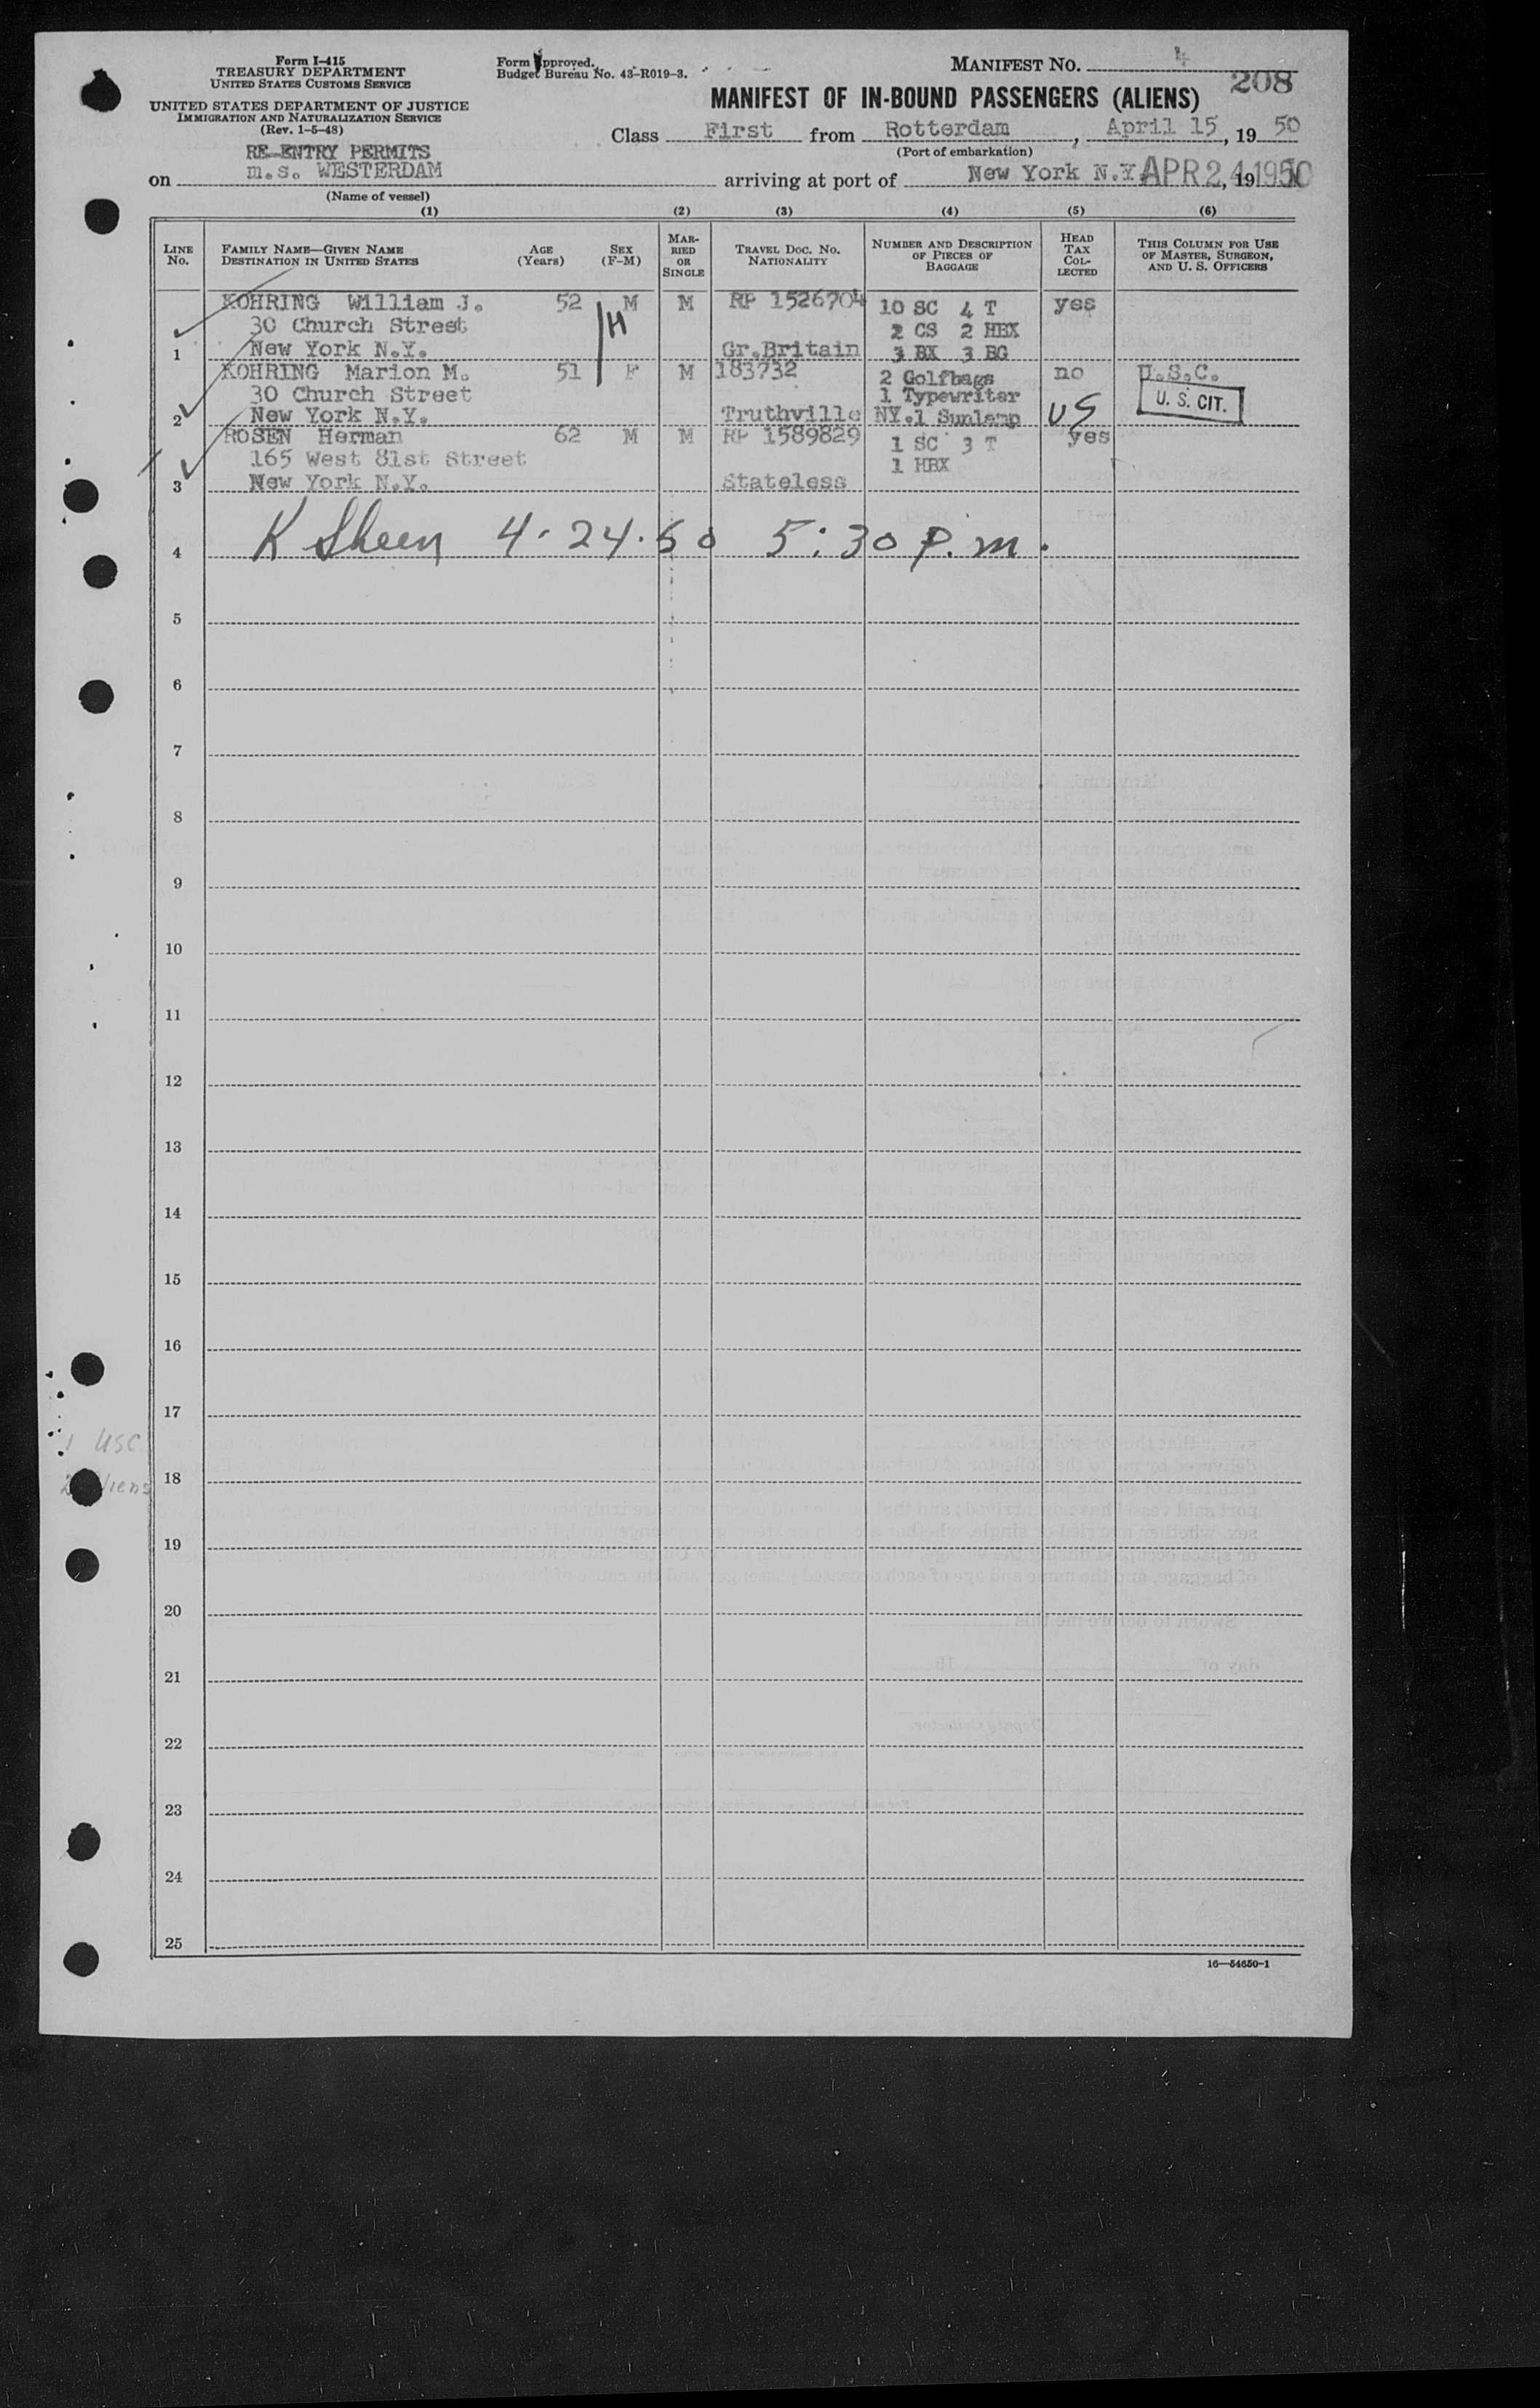 Form I-415
TREASURY DEPARTMENT
UNITED STATES CUSTOMS SERVICE
UNITED STATES DEPARTMENT OF JUSTICE
IMMIGRATION AND NATURALIZATION SERVICE
(Rev. 1-5-48)
Form approved.
Budget Bureau No. 43-R019-3.
MANIFEST NO. 4
208
MANIFEST OF IN-BOUND PASSENGERS (ALIENS)
Class First from Rotterdam, April 15, 1950
(Port of embarkation)
RE-ENTRY PERMITS
on m.s. WESTERDAM arriving at port of New York N.Y. APR 24 1950, 19
(Name of vessel)
(1) (2) (3) (4) (5) (6)
LINE NO.
FAMILY NAME—GIVEN NAME
DESTINATION IN UNITED STATES
AGE (Years)
SEX (F-M)
MARRIED OR SINGLE
TRAVEL DOC. NO.
NATIONALITY
NUMBER AND DESCRIPTION OF PIECES OF BAGGAGE
HEAD TAX COLLECTED
THIS COLUMN FOR USE OF MASTER, SURGEON, AND U. S. OFFICERS
KOHRING William J. 52 M M RP 1526704 10 SC 4 T yes
30 Church Street H 2 CS 2 HBX
1 New York N.Y. Gr.Britain 3 BX 3 BG
KOHRING Marion M. 51 F M 183732 2 Golfbags no U.S.C.
30 Church Street 1 Typewriter U. S. CIT.
2 New York N.Y. Truthville NY. 1 Sunlamp US
ROSEN Herman 62 M M RP 1589829 1 SC 3 T yes
165 West 81st Street 1 HBX
3 New York N.Y. Stateless
4 K Sheen 4-24-50 5:30 p.m.
5
6
7
8
9
10
11
12
13
14
15
16
17
1 USC
18
19
20
21
22
23
24
25
16—54650-1